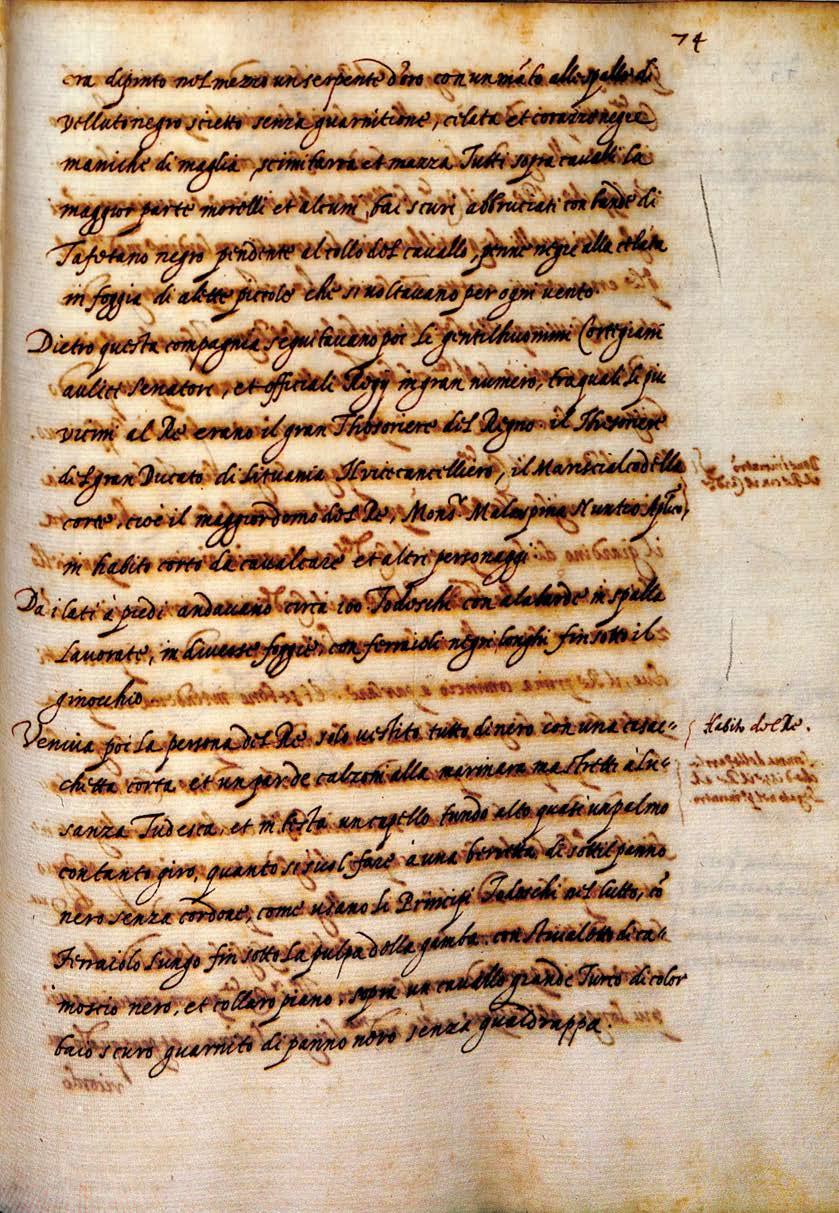 74
era dipinto nel mezzo un serpente d'oro con un mãto alle spalle di
velluto negro scietto senza guarnitione, celata et corazze negre
maniche di maglia, scimitarra et mazza Tutti sopra cavalli la
maggior parte morelli et alcuni bai scuri abbruciati con bande di
Tafetano negro pendente al collo del cavallo, penne negre alla celata
in foggia di alette piccole che si voltavano per ogni vento
Dietro questa compagnia seguitavano poi li gentilhuomini Cortegiani
aulici Senatori, et officiali Regij in gran numero, tra quali li piu
vicini al Re erano il gran Thesoriere del Regno il Thesoriere
del gran Ducato di Lituania Il vicecancelliero, il Mariscialco della
corte, cioè il maggiordomo del Re, Mons.r Malaspina Nuntio Aplico,
in habito corto da cavalcare et altri personaggi
Da i lati à piedi andavano circa 100 Todeschi con alabarde in spalla
Lavorate, in diverse foggie, con ferraioli negri longhi fin sotto il
ginocchio
Veniva poi la persona del Re solo vestito tutto di nero con una casac=
chetta corta et un par de calzoni alla marinara ma stretti à Lu=
sanza Tudesca, et in testa un capello tundo alto quasi un palmo
con tanto giro, quanto si suol fare à una beretta di sottil panno
nero senza cordone, come usano li Principi Todeschi nel lutto, cõ
Ferraiolo Lungo fin sotto la pulpa della gamba con stivaletto di ca=
moscio nero, et collaro piano, sopra un cavallo grande Turco di color
baio scuro guarnito di panno nero senza gualdrappa.
Habito del Re.